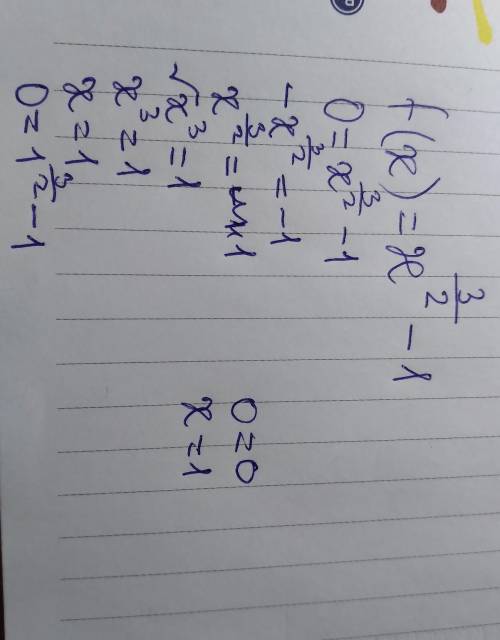 f(x) = x^(3/2) - 1
0 = x^(3/2) - 1
-x^(3/2) = -1
x^(3/2) = 1
√x^3 = 1
x^3 = 1
x = 1
0 = 1^(3/2) - 1
0 = 0
x = 1